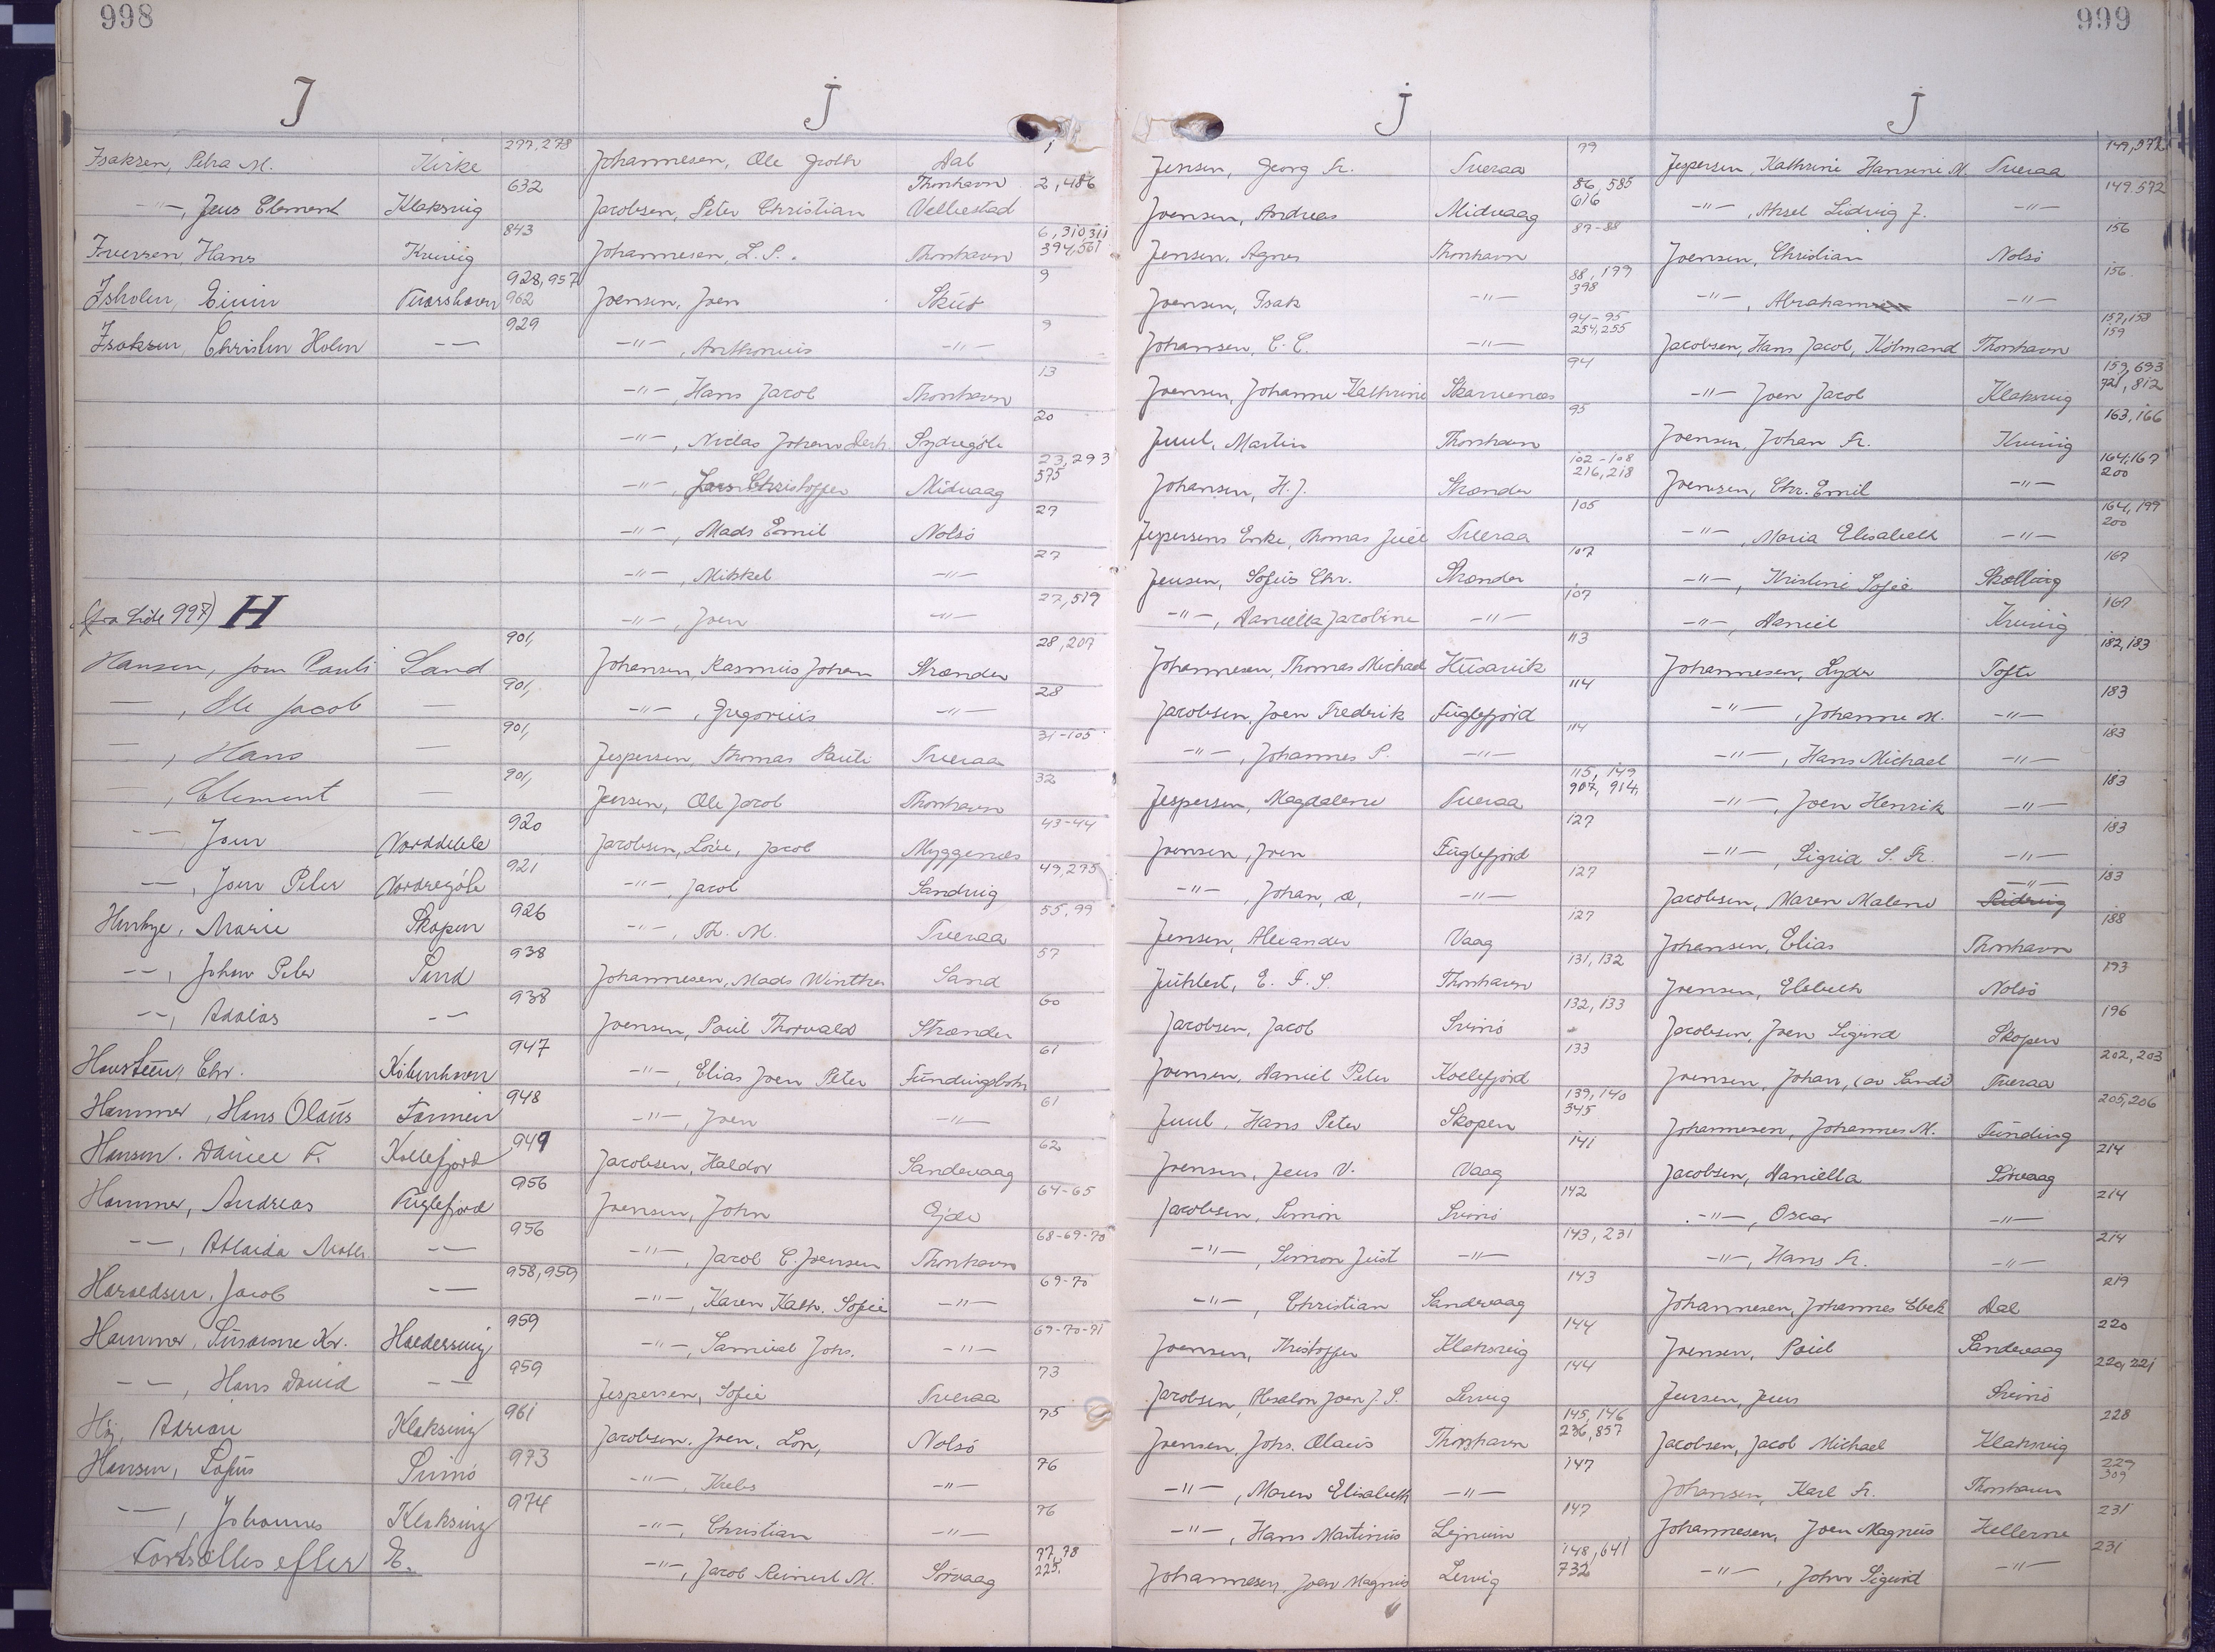 998
J
Isaksen, Petra M. Kirke 277, 278
-"-, Jens Clement Klaksvig 632
Iversen, Hans Kvivig 843
Isholm, Eivin Tvørshavn 928, 957 962
Isaksen, Christen Holm -- 929
(fra Side 997) H
Hansen, Joen Pauli Sand 901,
— , Ole Jacob — 901,
— , Hans — 901,
— , Clement — 901,
— Joen Norddeble 920
— , Joen Peter Nordregøte 921
Henkye, Marie Skopen 926
--, Johan Peter Sand 938
--, -- 938
Chr. Kibenhavn 947
Hammer, Hans Olaus Famien 948
Hansen. Daniel F. Kollefjord 949
Hammer, Andreas Fuglefjord 956
--, -- 956
Haraldsen, Jacob -- 958, 959
Hammer, Susanne Kr. Haldersvig 959
--, Hans David -- 959
Høj, Adrian Klaksvig 961
Hansen, Sofus Svinø 973
--, Johannes Klaksvig 974
Fortsættes efter E.
j
Johannesen, Ole Jacob Dal 1
Jacobsen, Peter Christian Thorshavn Velbestad 2, 486
Johannesen, L. P. Thorshavn 6, 310 311 394, 561
Joensen, Joen Skuø 9
-"-, Anthonius -"- 9
-"-, Hans Jacob Thorshavn 13
-"-, Niclas Johan Sydregøte 20
-"-, Christoffer Midvaag 23, 293 575
-"-, Mads Emil Nolsø 27
-"-, Mikkel -"- 27
-"-, Joen -"- 27, 519
Johansen, Rasmus Johan Strænder 28, 207
-"-, Gregorius -"- 28
Jespersen, Thomas Pauli Tveraa 31-105
Jensen, Ole Jacob Thorshavn 32
Jacobsen, Jacob Myggenæs 43-44
-"-, Jacob Sandvig 49, 275
-"-, Th. M. Tveraa 55, 99
Johannesen, Mads Winther Sand 57
Joensen, Poul Thorvald Strænder 60
-"-, Elias Joen Peter Fundingsbotn 61
-"-, Joen -"- 61
Jacobsen, Haldor Sandevaag 62
Joensen, John Ejde 64-65
-"-, Jacob C. Joensen Thorshavn 68-69-70
-"-, Karen Kath. Sofie -"- 69-70
-"-, Samuel Johs. -"- 69-70-71
Jespersen, Sofie Tveraa 73
Jacobsen, Joen, Lon, Nolsø 75
-"-, Krebs -"- 76
-"-, Christian -"- 76
-"-, Jacob Reinert M. Sørvaag 77, 78 225.
999
j
Jensen, Georg Fr. Tveraa 79
Joensen, Andreas Midvaag 86, 585 616
Jensen, Agnes Thorshavn 87-88
Joensen, Isak -"- 88, 199 398
Johansen, C. C. -"- 94-95 254, 255
Joensen, Johanne Kathrine Skarvenæs 94
Juul, Martin Thorshavn 95
Johansen, H. J. Strænder 102-108 216, 218
Jespersens Enke, Thomas Juel Tveraa 105
Jensen, Sofus Chr. Strænder 107
-"-, Daniella Jacobine -"- 107
Johannesen, Thomas Michael Husavik 113
Jacobsen, Joen Fredrik Fuglefjord 114
-"-, Johannes P. -"- 114
Jespersen, Magdalene Tveraa 115, 149 907, 914,
Joensen, Joen Fuglefjord 127
-"-, Johan, a, -"- 127
Jensen, Alexander Vaag 127
Juhlert, E. F. S. Thorshavn 131, 132
Jacobsen, Jacob Svinø 132, 133
Joensen, Daniel Peter Kollefjord 133
Juul, Hans Peter Skopen 139, 140 345
Joensen, Jens V. Vaag 141
Jacobsen, Simon Svinø 142
-"-, Simon Just -"- 143, 231
-"-, Christian Sandevaag 143
Joensen, Kristoffer Klaksvig 144
Jacobsen, Absalon Joen J. S. Lervig 144
Joensen, Johs. Olaus Thorshavn 145, 146 236, 857
-"-, Maren Elisabeth -"- 147
-"-, Hans Martinus Lejnum 147
Johannesen, Joen Magnus Lervig 148, 641 732
j
Jespersen, Kathrine Hansine M. Tveraa 149, 572
-"-, Aksel Ludvig J. -"- 149. 572
Joensen, Christian Nolsø 156
-"-, Abraham -"- 156.
Jacobsen, Hans Jacob, Købmand Thorshavn 157, 158 159
-"- Joen Jacob Klaksvig 159, 693 721, 812
Joensen, Johan Fr. Kvivig 163, 166
Joensen, Chr. Emil -"- 164, 167 200
-"-, Maria Elisabeth -"- 164, 199 200
-"-, Kristine Sofie Skælling 167
-"-, Daniel Kvivig 167
Johannesen, Lyder Tofte 182, 183
-"-, Johanne M. -"- 183
-"-, Hans Michael -"- 183
-"-, Joen Henrik -"- 183
-"-, Sigrid S. Fr. -"- 183
Jacobsen, Maren Malene -"- 183
Johansen, Elias Thorshavn 188
Joensen, Elsbeth Nolsø 193
Jacobsen, Joen Sigurd Skopen 196
Joensen, Johan, (av Sandi) Tveraa 202, 203
Johannesen, Johannes M. Funding 205, 206
Jacobsen, Daniella Sørvaag 214
-"-, Oscar -"- 214
-"-, Hans Fr. -"- 214
Johannesen, Johannes Ebek Dal 219
Joensen, Poul Sandevaag 220
Jensen, Jens Svinø 220, 221
Jacobsen, Jacob Michael Klaksvig 228
Johansen, Karl Fr. Thorshavn 229 309
Johannesen, Joen Magnus Hellerne 231
-"-, John Sigurd -"- 231